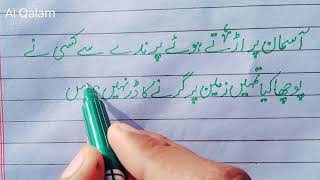 Al Qalam
آسمان پر اڑتے ہوئے پرندے سے کسی نے
پوچھا کیا تمہیں زمین پر گرنے کا ڈر نہیں